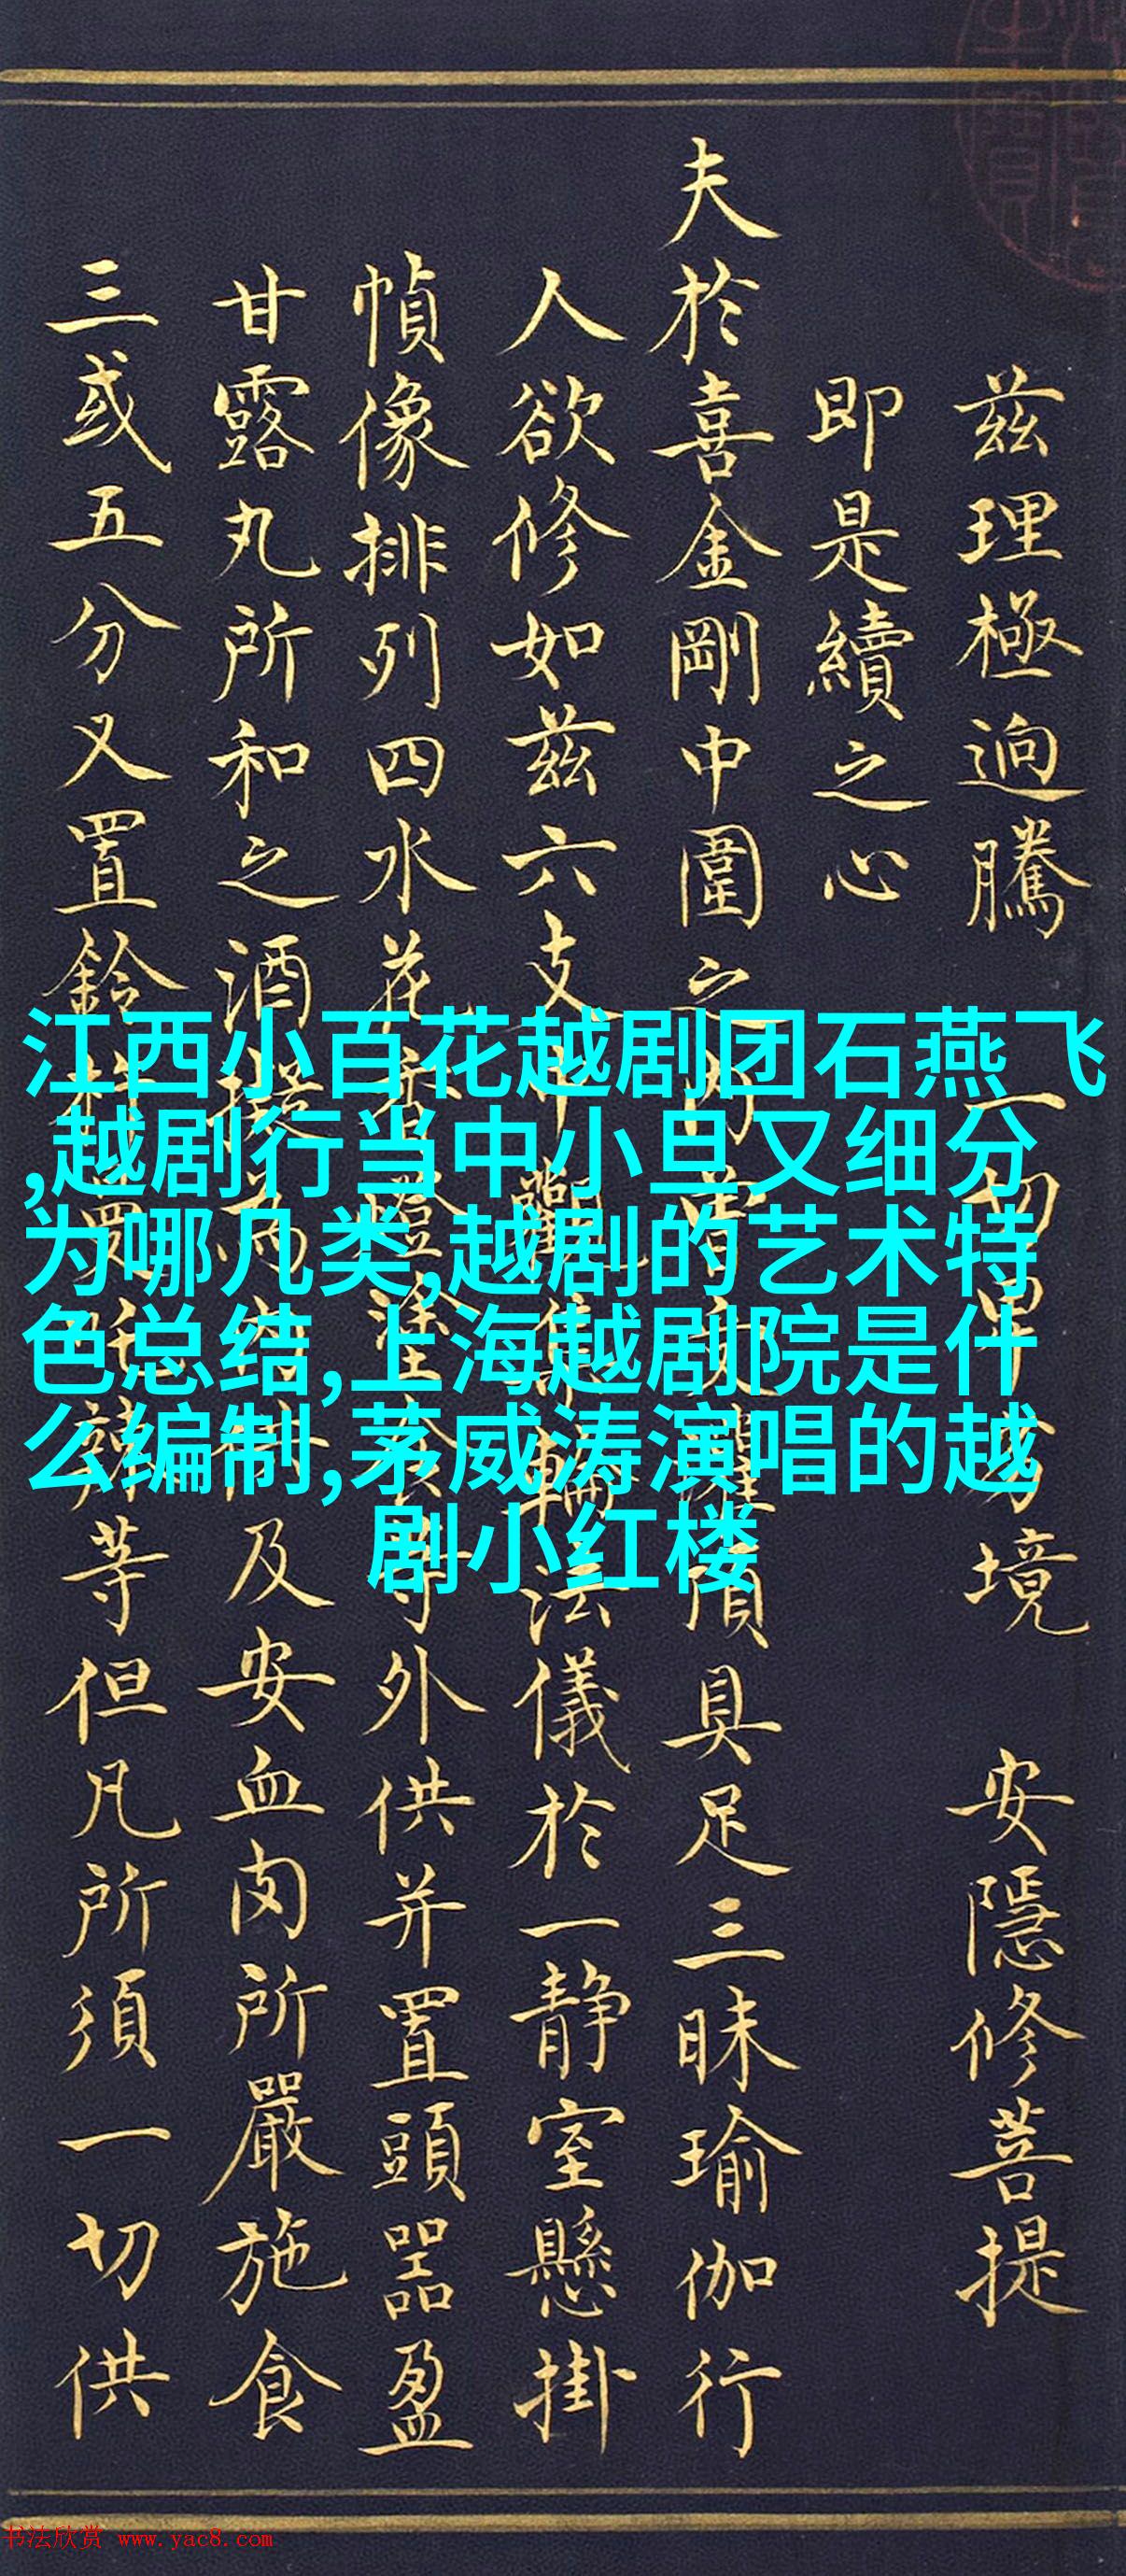 茲理極迥騰 一切 境 安隱修菩提
即是續之心
夫於喜金剛中圍之内 具足三昧瑜伽行
人欲修如茲六支 法儀於一静室懸掛
幀像排列四水花香燈塗 外供并置頭器盈
甘露丸所和之酒 及安血肉所嚴施食
三或五分又置鈴杵 等但凡所須一切供
江西小百花越剧团石燕飞
,越剧行当中小旦又细分
为哪几类,越剧的艺术特
色总结,上海越剧院是什
么编制,茅威涛演唱的越
剧小红楼
书法欣赏 www.yac8.com